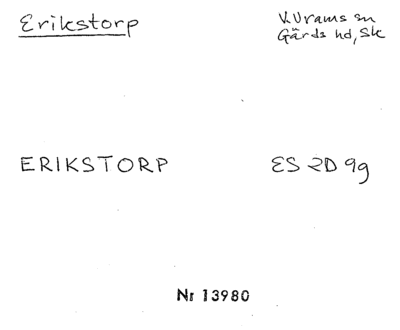 Erikstorp
V. Vrams sn
Gärds hd, Sk
ERIKSTORP
ES 2D 9g
Nr 13980